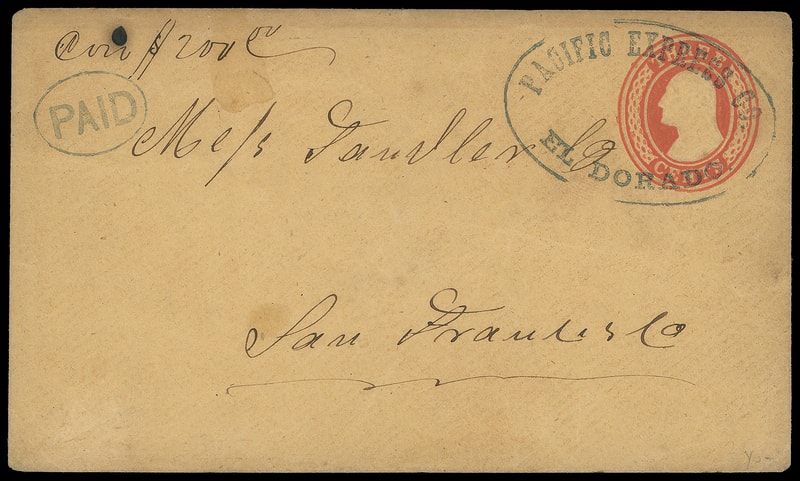 Con $200 00
PAID
PACIFIC EXPRESS CO.
EL DORADO.
CENTS
Mess Tandler Co
San Francisco